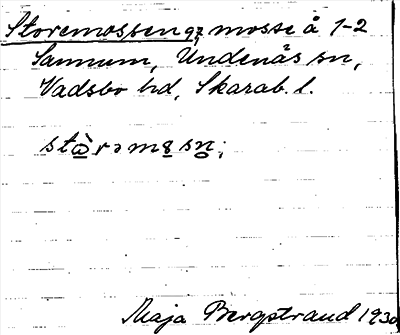 Storemossen 97, mosse å 1-2
Sannum, Undenäs sn,
Vadsbo hd, Skarab. l.
stɷ̀rəmɞsn̥;
Maja Bergstrand 1930